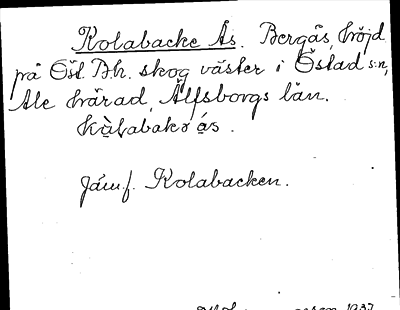 Kolabacke Ås. Bergås, höjd
på Öst. Bh. skog väster i Östad s:n,
Ale härad, Älfsborgs län.
kàlabakɘ ás.
Jämf. Kolabacken.
1937